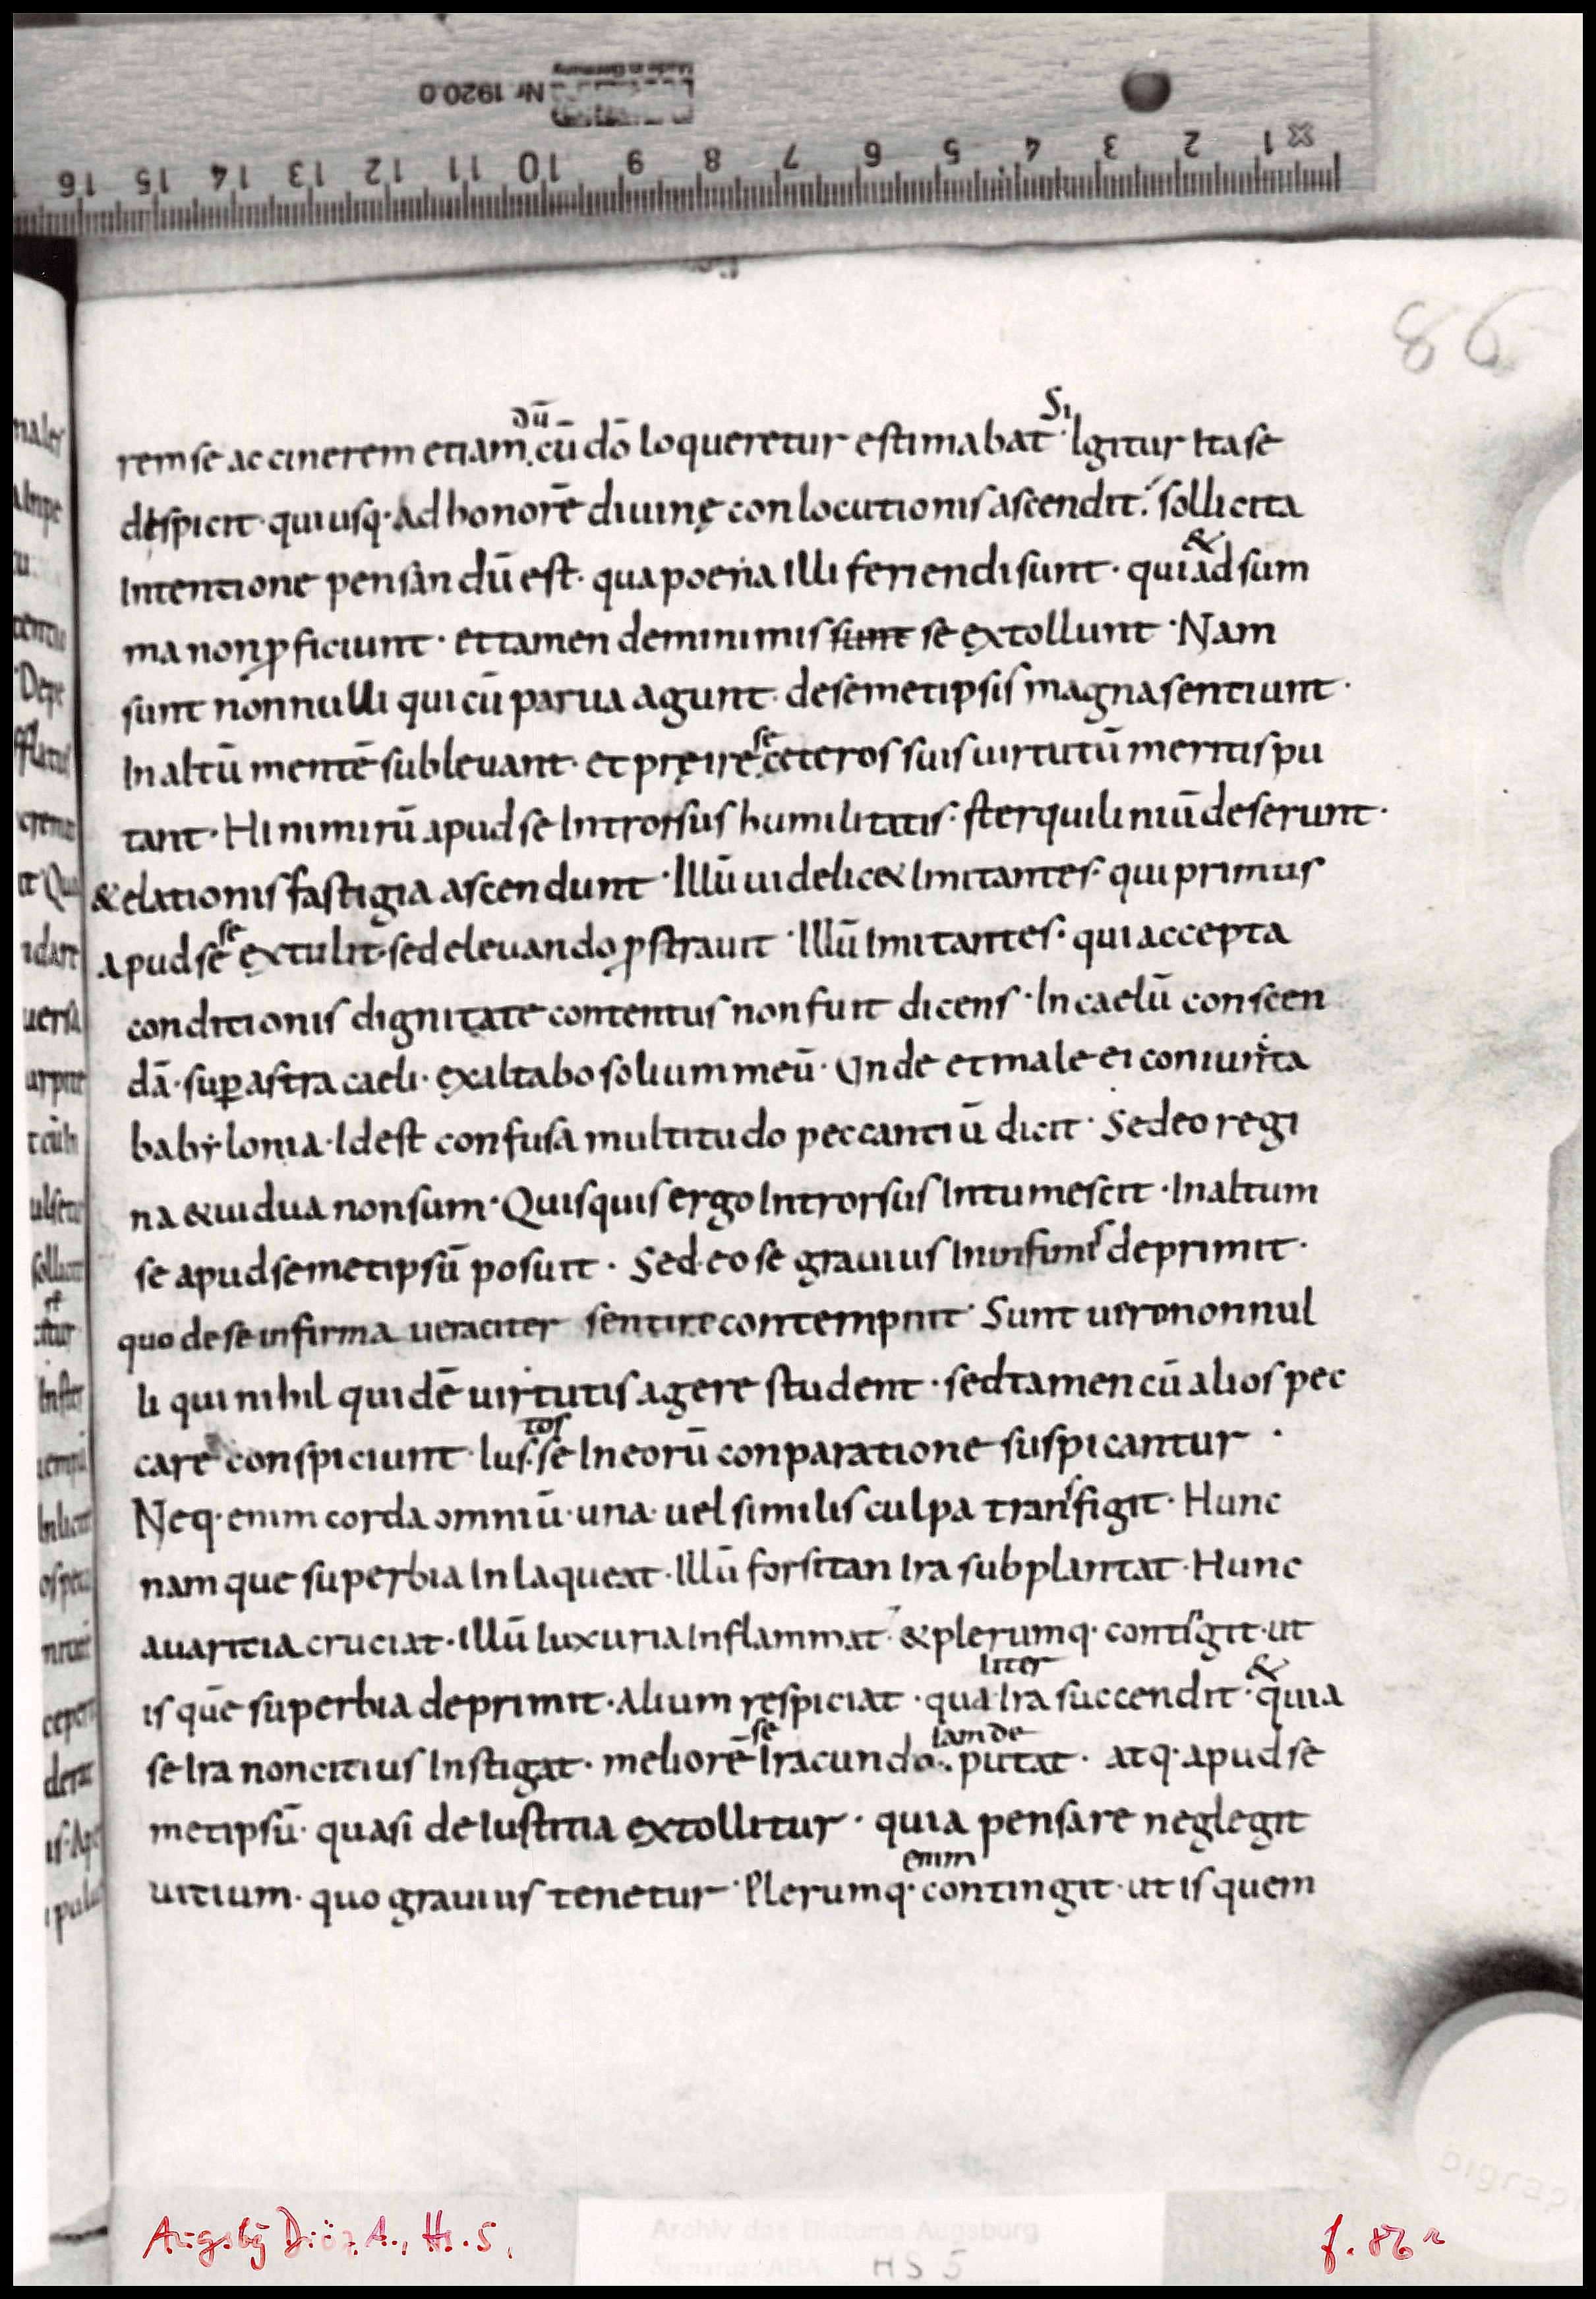 Nr 1920.0
Made in Germany
16 15 14 13 12 11 10 9 8 7 6 5 4 3 2 1
86
dū Si
rem se ac cinerem etiam cū dō loqueretur estimabat · Igitur Ita se
despicit · qui usq· ad honorē diuinę conlocutionis ascendit · sollicita
&
Intentione pensandū est · qua poena Illi feriendi sunt · qui ad sum
ma non ꝓficiunt · et tamen de minimis sunt se extollunt · Nam
sunt nonnulli qui cū parua agunt · de semetipsis magna sentiunt ·
se
In altū mentē subleuant · et pręire ceteros suis uirtutū meritis pu
tant · Hi nimirū apud se Introrsus humilitatis · sterquiliniū deserunt ·
& elationis fastigia ascendunt · Illū uidelic& Imitantes · qui primus
se
apud se extulit · sed eleuando ꝓstrauit · Illū Imitantes · qui accepta
conditionis dignitate contentus non fuit dicens · In caelū conscen
dā · suꝑ astra caeli · exaltabo solium meū · Unde et male ei coniuncta
babẏlonia · Idest confusa multitudo peccantiū dicit · Sedeo regi
na & uidua non sum · Quisquis ergo Introrsus Intumescit · In altum
se apud semetipsū posuit · Sed eo se grauius In infimis deprimit ·
quo de se infirma ueraciter sentire contempnit · Sunt uero nonnul
li qui nihil quidē uirtutis agere student · sed tamen cū alios pec
tos
care conspiciunt · Ius · se In eorū conparatione suspicantur ·
Neq· enim corda omniū · una · uel similis culpa transfigit · Hunc
namque superbia Inlaqueat · Illū forsitan Ira subplantat · Hunc
auaritia cruciat · Illū luxuria Inflammat · & plerumq· contigit · ut
liter &
is quē superbia deprimit · Alium respiciat · qua Ira succendit · quia
se iam de
se Ira non citius Instigat · meliorē Iracundo · putat · atq· apud se
metipsū · quasi de Iustitia extollitur · quia pensare neglegit
enim
uitium · quo grauius tenetur · Plerumq· contingit · ut is quem
Augsbg Diöz. A., Hs. 5.
f. 86 r
Archiv des Bistums Augsburg
HS 5